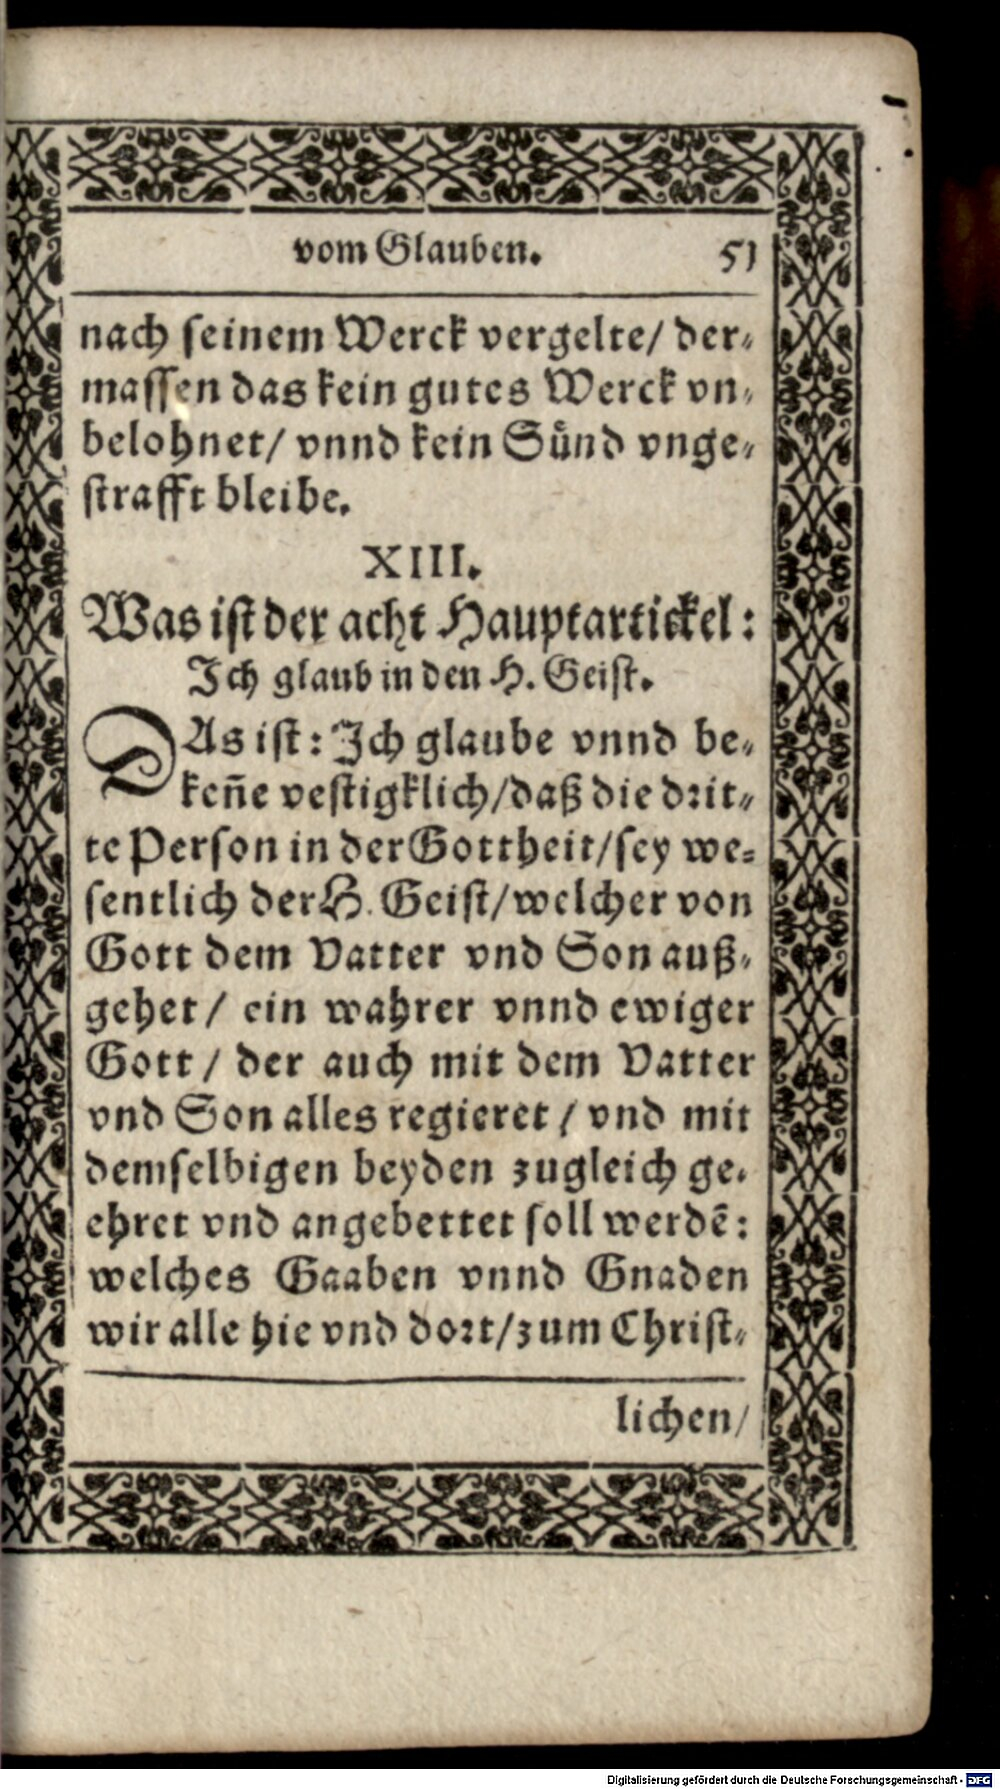 vom Glauben. 51
nach seinem Werck vergelte/ der-
massen das kein gutes Werck vn-
belohnet/ vnnd kein Sünd vnge-
strafft bleibe.
XIII.
Was ist der acht Hauptartickel:
Ich glaub in den H. Geist.
DAs ist: Ich glaube vnnd be-
keñe vestigklich/daß die drit-
te Person in der Gottheit/sey we-
sentlich der H. Geist/welcher von
Gott dem Vatter vnd Son auß-
gehet/ ein wahrer vnnd ewiger
Gott/ der auch mit dem Vatter
vnd Son alles regieret/ vnd mit
demselbigen beyden zugleich ge-
ehret vnd angebettet soll werdẽ:
welches Gaaben vnnd Gnaden
wir alle hie vnd dort/zum Christ-
lichen/
Digitalisierung gefördert durch die Deutsche Forschungsgemeinschaft - DFG